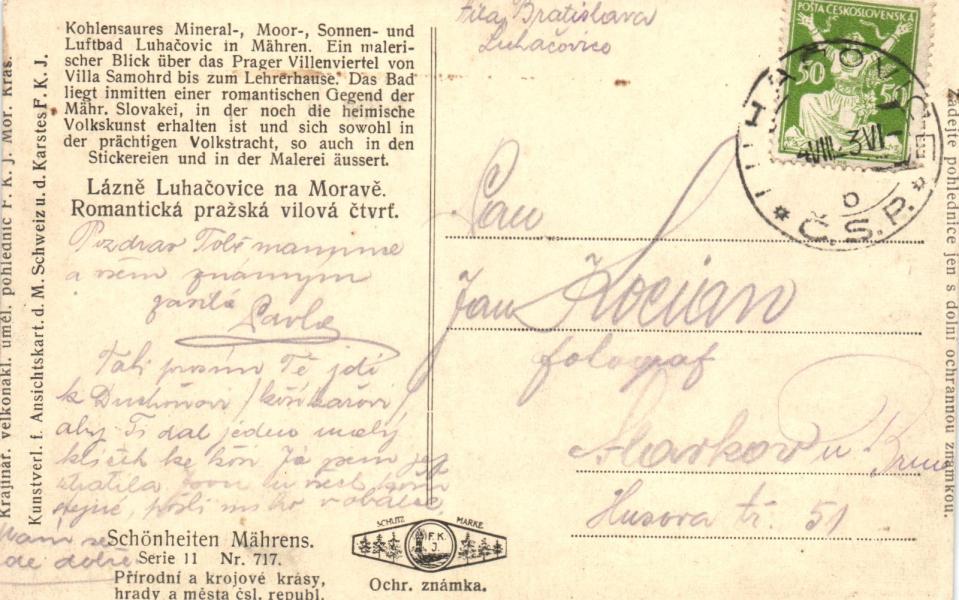 Krajinář. velkonakl. uměl. pohlednic F. K. J. Mor. Kras.
Kunstverl. f. Ansichtskart. d. M. Schweiz u. d. Karstes F. K. J.
Kohlensaures Mineral-, Moor-, Sonnen- und
Luftbad Luhačovic in Mähren. Ein maleri-
scher Blick über das Prager Villenviertel von
Villa Samohrd bis zum Lehrerhause. Das Bad
liegt inmitten einer romantischen Gegend der
Mähr. Slovakei, in der noch die heimische
Volkskunst erhalten ist und sich sowohl in
der prächtigen Volkstracht, so auch in den
Stickereien und in der Malerei äussert.
Lázně Luhačovice na Moravě.
Romantická pražská vilová čtvrť.
Pozdrav Tobě mamince
a všem známým
Pavla
Tati prosím Tě jdi
k
aby Ti dal jeden malý
klíček ke Já jsem jej
ztratila
pošli mi ho v obálce
Mám se
de dobře
Schönheiten Mährens.
Serie 11 Nr. 717.
Přírodní a krojové krásy,
hrady a města čsl. republ.
SCHUTZ MARKE
F. K.
J.
Ochr. známka.
Vila Bratislava
Luhačovice
POŠTA ČESKOSLOVENSKÁ
50 50
LUHAČOVICE
Č.S.P.
b
Pan
Jan Kocian
fotograf
u Brna
Husova tř. 51
Žádejte pohlednice jen s dolní ochrannou známkou.